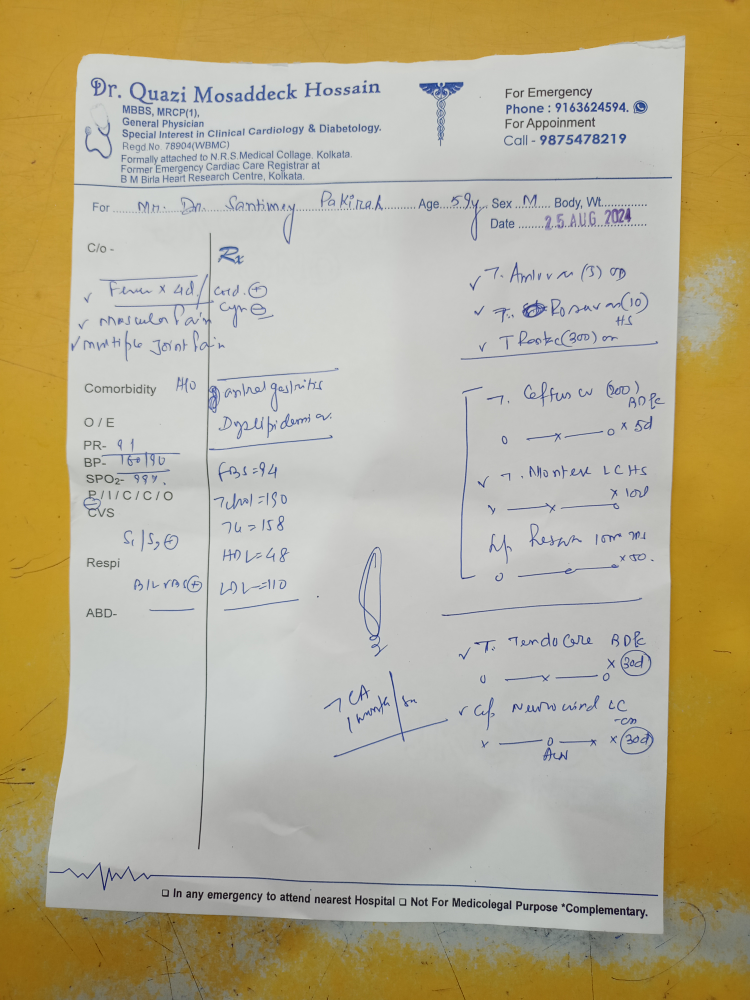 Dr. Quazi Mosaddeck Hossain
MBBS, MRCP(1),
General Physician
Special Interest in Clinical Cardiology & Diabetology.
Regd No. 78904(WBMC)
Formally attached to N.R.S.Medical Collage. Kolkata.
Former Emergency Cardiac Care Registrar at
B M Birla Heart Research Centre, Kolkata.
For Emergency
Phone : 9163624594.
For Appoinment
Call - 9875478219
For Mr. Dr. Santimoy Pakirah Age 59y Sex M Body, Wt.
Date 25 AUG 2024
C/o -
Fever x 4d
Muscular Pain
Multiple Joint Pain
Rx
Comorbidity H/O
antral gastritis
Dyslipidemia
O / E
PR- 91
BP- 160/90
SPO2- 99%.
P / I / C / C / O
CVS
S1/S2 +
Respi
B/L VBS +
ABD-
FBS = 94
Tchol = 190
TG = 158
HDL = 48
LDL = 110
T. (5) OD
T. (10)
HS
T (300) on
T. CV (200)
BDPC
o x o x 5d
T. Montek LC HS
x x o x 10d
10
o
T. Tendocare BDPC
o x o x 30d
LC
x o x x 30d
1 week
In any emergency to attend nearest Hospital Not For Medicolegal Purpose *Complementary.